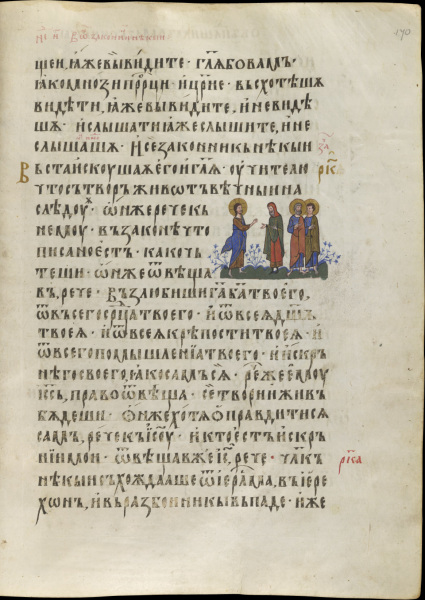 щеи, ꙗже вы видите · гл҃ѧ бо вамъ ·
ꙗко мнѡѕи пр҃рци · и цр҃ие · въсхотѣшѧ
видѣти, ꙗже вы видите, и не видѣ
шѧ · и слышати ꙗже слышите, и не
слышашѧ · И се законникь нѣкыи
въста искоушаѧ его и гл҃ѧ · оучителю
что сътворь живѡтъ вѣчныи на
слѣдоую · ѡн же рече къ
немоу · въ законѣ что
писано естъ · како чь
теши · ѡн же ѿвѣща
въ, рече · Възлюбиши г҃а б҃а твоего,
ѿ въсего ср҃ца твоего · и ѿ всеѧ дш҃ѧ
твоеѧ · и ѿ всеѧ крѣпости твоеѧ · и
ѿ всего помышленїа твоего · и искръ
нѣго своего, ꙗко самъ сѧ · рече же емоу
іс҃ъ, право ѿвѣща · се твори и живъ
бѫдеши · Ѡн же хотѧ ѡправдитисѧ
самъ, рече къ іс҃оу · и кто естъ искръ
нїи мои · ѿвѣщав же іс҃, рече · чл҃къ
нѣкыи съхождааше ѿ іер҃лма, въ іери
хѡнъ, и въ разбоиникы въпаде · иже